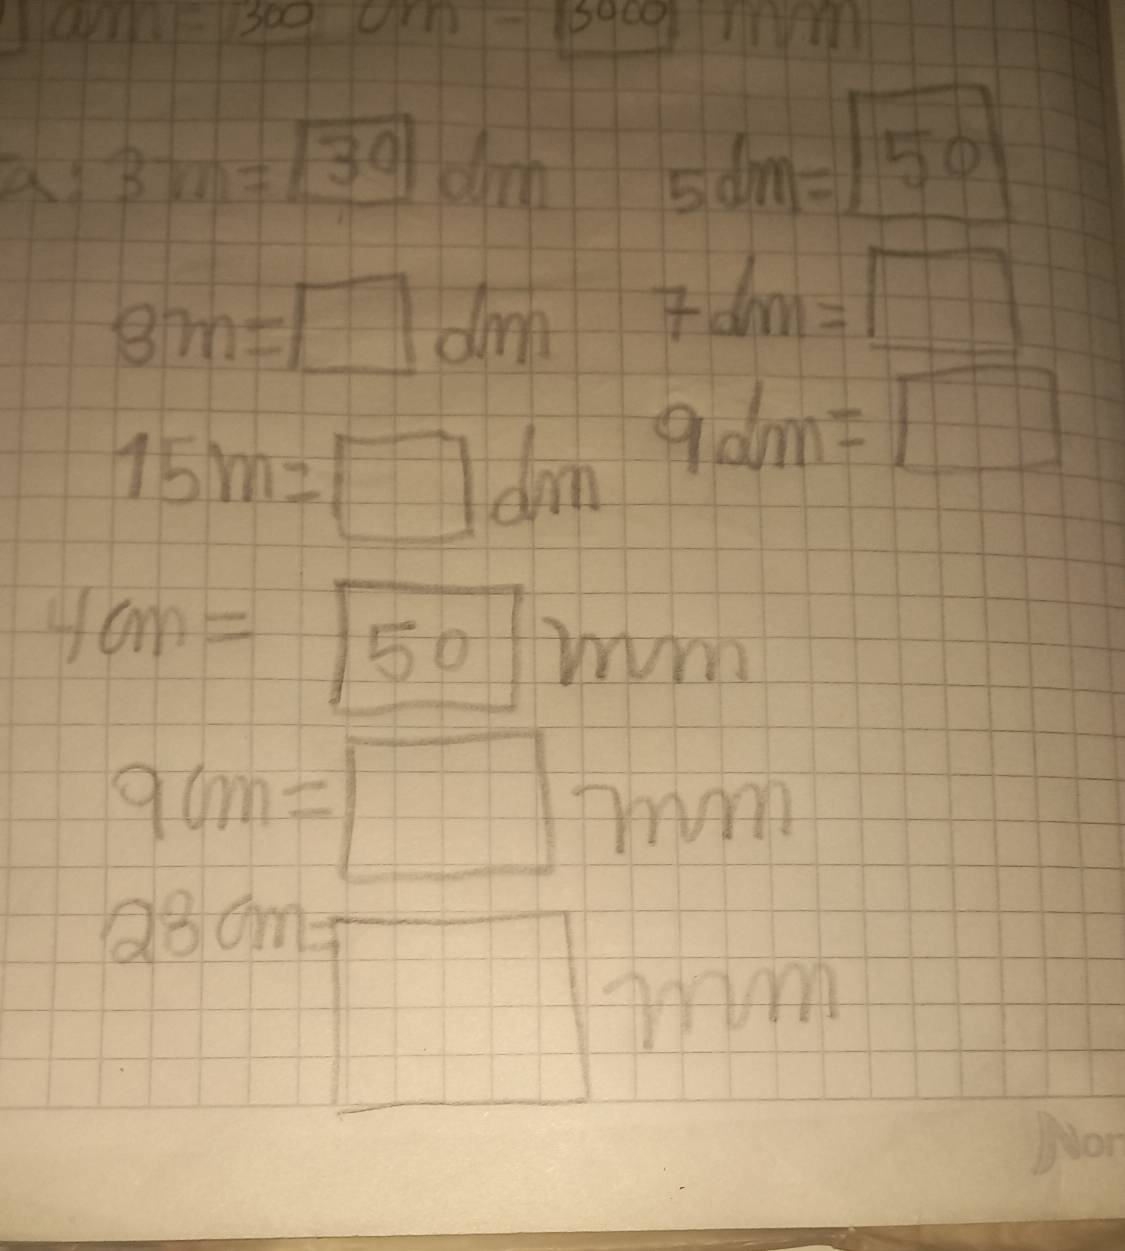 m = 300 cm = 3000 mm
a: 3m = 30 dm 5dm = 50
8m = dm 7dm =
15m = dm 9dm =
4cm = 50 mm
9cm = mm
28cm = mm
Nor